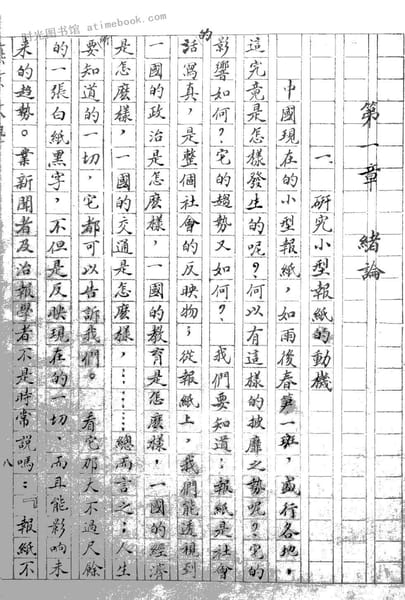 时光图书馆 atimebook.com
第一章 緒論
一、研究小型報紙的動機
中國現在的小型報紙，如雨後春筍一班，盛行各地，
這究竟是怎樣發生的呢？何以有這樣的披靡之勢呢？它的
影響如何？它的趨勢又如何？ 我們要知道：報紙是社會
的
話寫真，是整個社會的反映物；從報紙上，我們能透視到
一國的政治是怎麽樣，一國的教育是怎麽樣，一國的經濟
是怎麽樣，一國的交通是怎麽樣，……總而言之：人生
所
要知道的一切，它都可以告訴我們。 看它那大不過尺餘
的一張白紙黑字，不但是反映現在的一切，而且能影响未
來的趨勢。業新聞者及治報學者不是時常説嗎：『報紙不
八